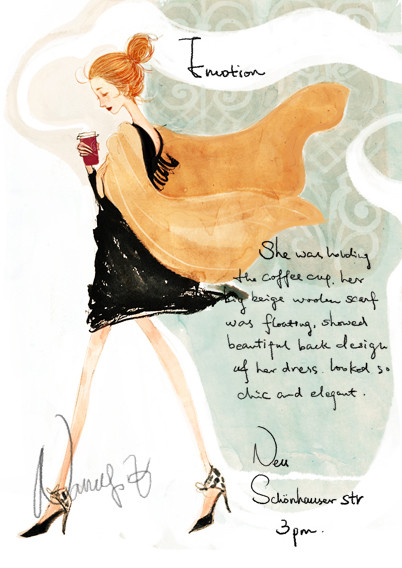 Emotion
She was holding
the coffee cup, her
big beige woolen scarf
was floating, showed
beautiful back design
of her dress. looked so
chic and elegant.
Neu
Schönhauser str
3pm.